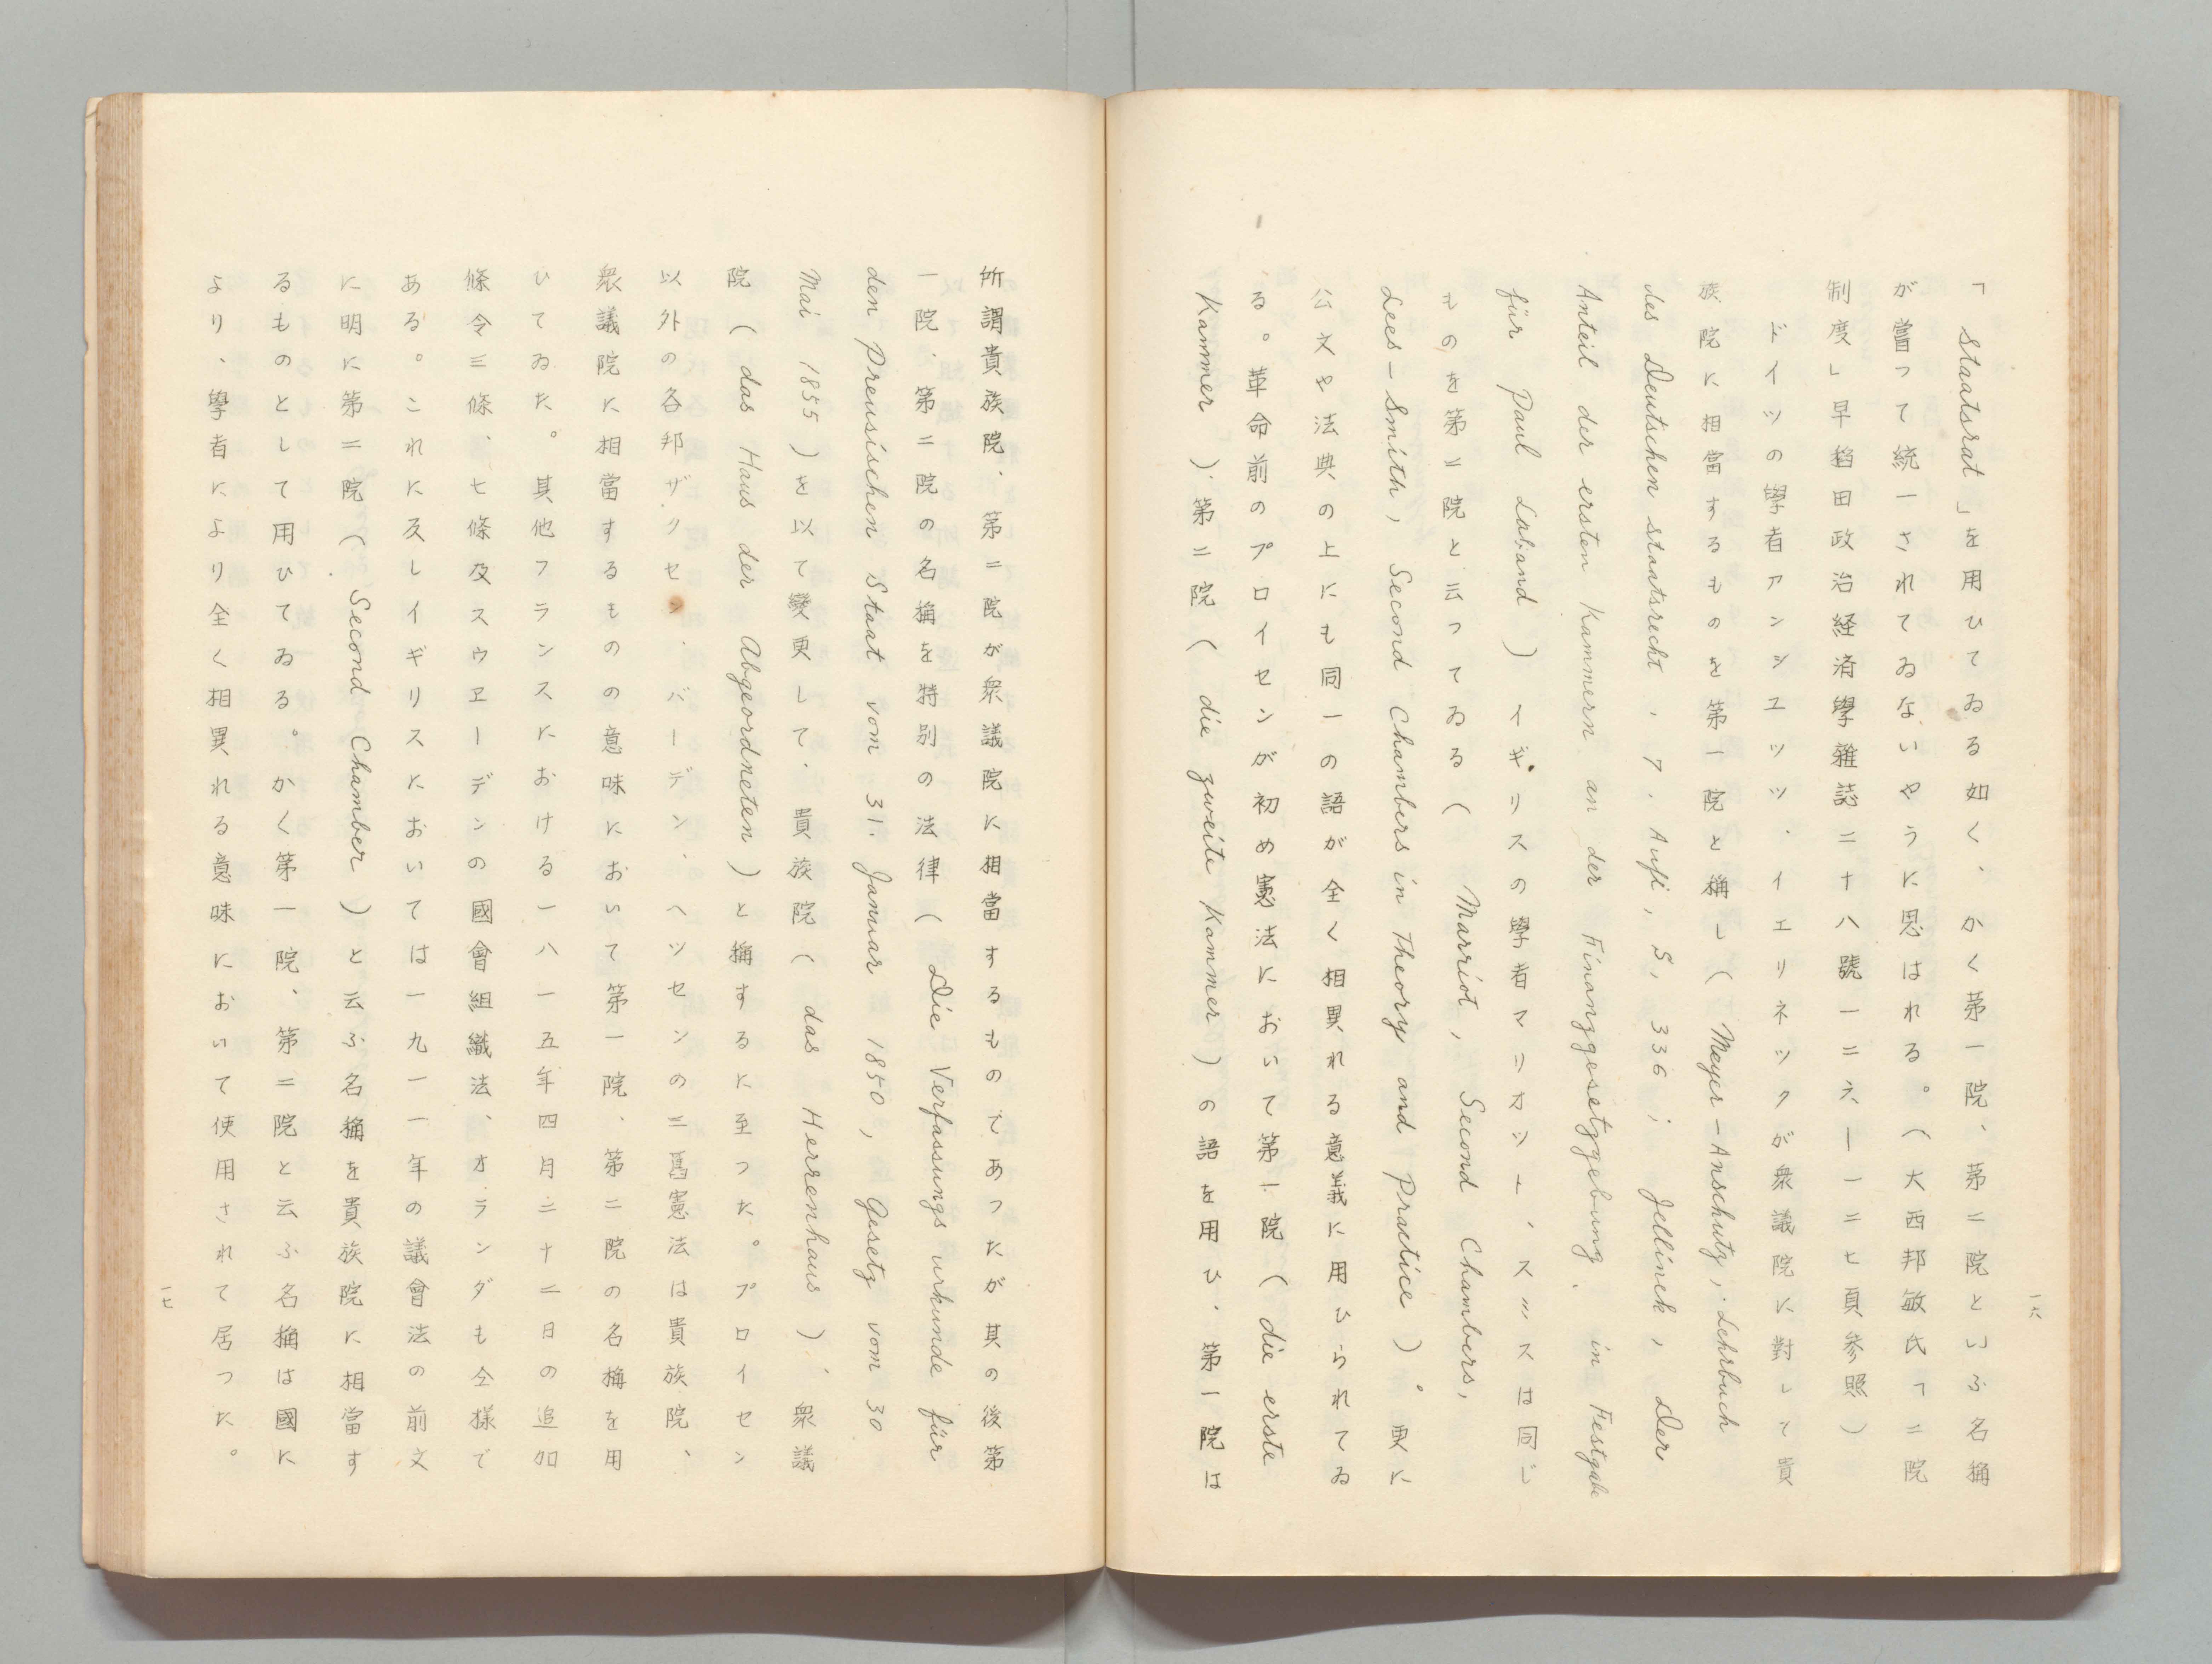 一六
「Staatsrat」を用ひてゐる如く、かく第一院、第二院といふ名稱
が嘗って統一されてゐないやうに思はれる。(大西邦敏氏「二院
制度」早稻田政治経済學雜誌二十八號一二六―一二七頁参照)
ドイツの學者アンシユツツ、イエリネックが衆議院に對して貴
族院に相當するものを第一院と稱し(Meyer-Anschutz, Lehrbuch
des Deutschen staatsrecht, 7, Aufl, S, 336; Jellinek, Der
Anteil der ersten Kammern an der Finanzgesetzgebung. in Festgabe
für Paul Laband)イギリスの學者マリオット、スミスは同じ
ものを第二院と云ってゐる(Marriot, Second Chambers,
Lees-Smith, Second Chambers in Theory and Practice)。更に
公文や法典の上にも同一の語が全く相異れる意義に用ひられてゐ
る。革命前のプロイセンが初め憲法において第一院(die erste
Kammer)、第二院(die zweite Kammer)の語を用ひ、第一院は
所謂貴族院、第二院が衆議院に相當するものであったが其の後第
一院、第二院の名稱を特別の法律(Die Verfassungs urkunde für
den Preusischen Staat vom 31. Januar 1850, Gesetz vom 30
Mai 1855)を以て變更して、貴族院(das Herrenhaus)、衆議
院(das Haus der Abgeordneten)と稱するに至った。プロイセン
以外の各邦ザクセン、バーデン、ヘッセンの三舊憲法は貴族院、
衆議院に相當するものの意味において第一院、第二院の名稱を用
ひてゐた。其他フランスにおける一八一五年四月二十二日の追加
條令三條、七條及スウエーデンの國會組織法、オランダも仝様で
ある。これに反しイギリスにおいては一九一一年の議會法の前文
に明に第二院(Second Chamber)と云ふ名稱を貴族院に相當す
るものとして用ひてゐる。かく第一院、第二院と云ふ名稱は國に
より、學者により全く相異れる意味において使用されて居った。
一七